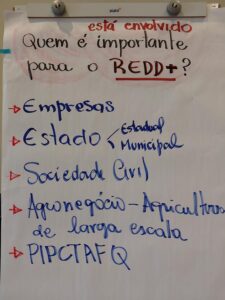 está envolvido
Quem é importante
para o REDD+?
Empresas
Estado Estadual
Municipal
Sociedade Civil
Agronegócio - Agricultura
de larga escala
PIPCTAFQ